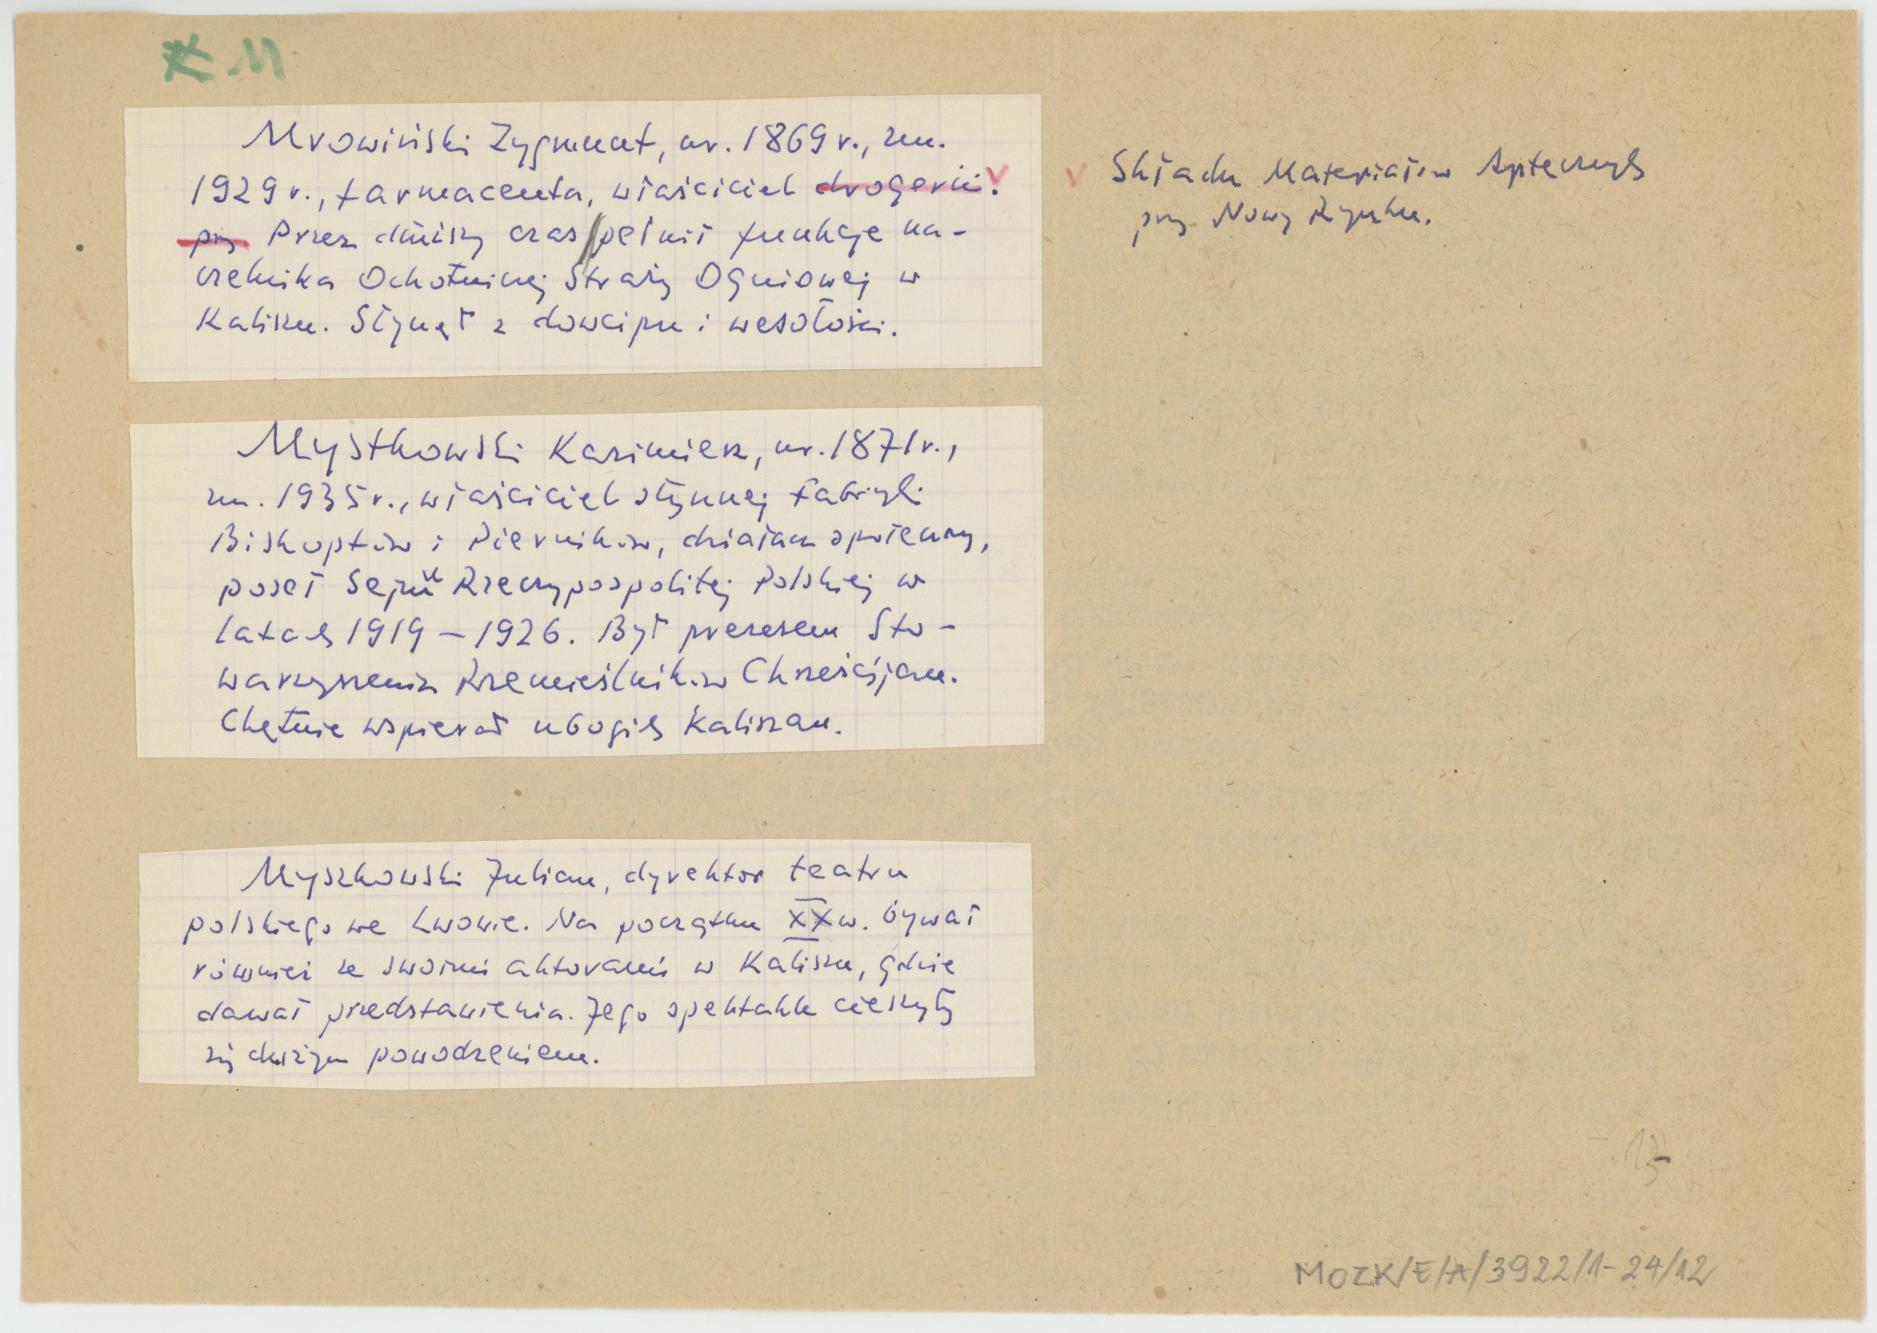 M
Mrowiński Zygmunt, ur. 1869 r., zm.
1929 r., farmaceuta, właściciel drogerii. V
przy Przez dłuższy czas pełnił funkcję na-
czelnika Ochotniczej Straży Ogniowej w
Kaliszu. Słynął z dowcipu i wesołości.
V Składu Materiałów Aptecznych
przy Nowy Rynku.
Mystkowski Kazimierz, ur. 1871 r.,
zm. 1935 r., właściciel słynnej Fabryki
Biskoptów i Pierników, działacz społeczny,
poseł Sejmu Rzeczypospolitej Polskiej w
latach 1919 – 1926. Był prezesem Sto-
warzyszenia Rzemieślników Chrześcijan.
Chętnie wspierał ubogich Kaliszan.
Myszkowski Julian, dyrektor teatru
polskiego we Lwowie. Na początku XX w. bywał
również ze swoimi aktorami w Kaliszu, gdzie
dawał przedstawienia. Jego spektakle cieszyły
się dużym powodzeniem.
MOZK/E/A/3922/1-24/12